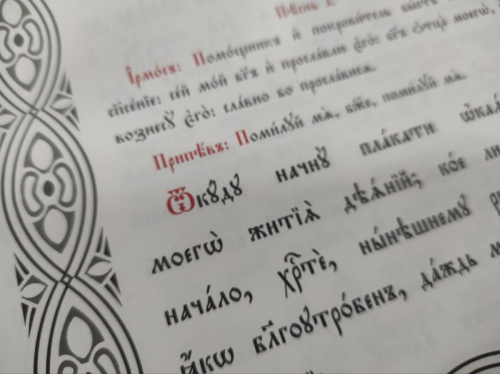 Пѣснь
Ірмо́съ: Помо́щникъ и҆ покрови́тель бы́сть
сп҃се́нїе: се́й мо́й бг҃ъ и҆ просла́влю є҆го̀: бг҃ъ ѻ҆тца̀ моегѡ̀,
вознесꙋ̀ є҆го̀: сла́вно бо просла́висѧ.
Припѣ́въ: Поми́лꙋй мѧ̀, бж҃е, поми́лꙋй мѧ̀.
Ѿкꙋ́дꙋ начнꙋ̀ пла́кати
моегѡ̀ житїѧ̀ дѣѧ́нїй; ко́е
нача́ло, хрⷭ҇тѐ, ны́нѣшнемꙋ
ꙗ҆́кѡ бл҃гоꙋтро́бенъ, да́ждь